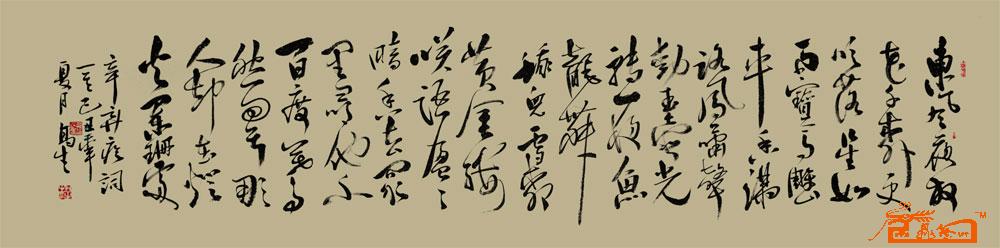 東風夜放
花千樹更
吹落星如
雨寶馬雕
車香滿
路鳳簫聲
動壺光
轉一夜魚
龍舞
蛾兒雪柳
黄金縷
笑語盈〻
暗香去眾
里尋他千
百度驀
然回首那
人却在燈
火闌珊處
辛弃疾詞
己丑年
夏月